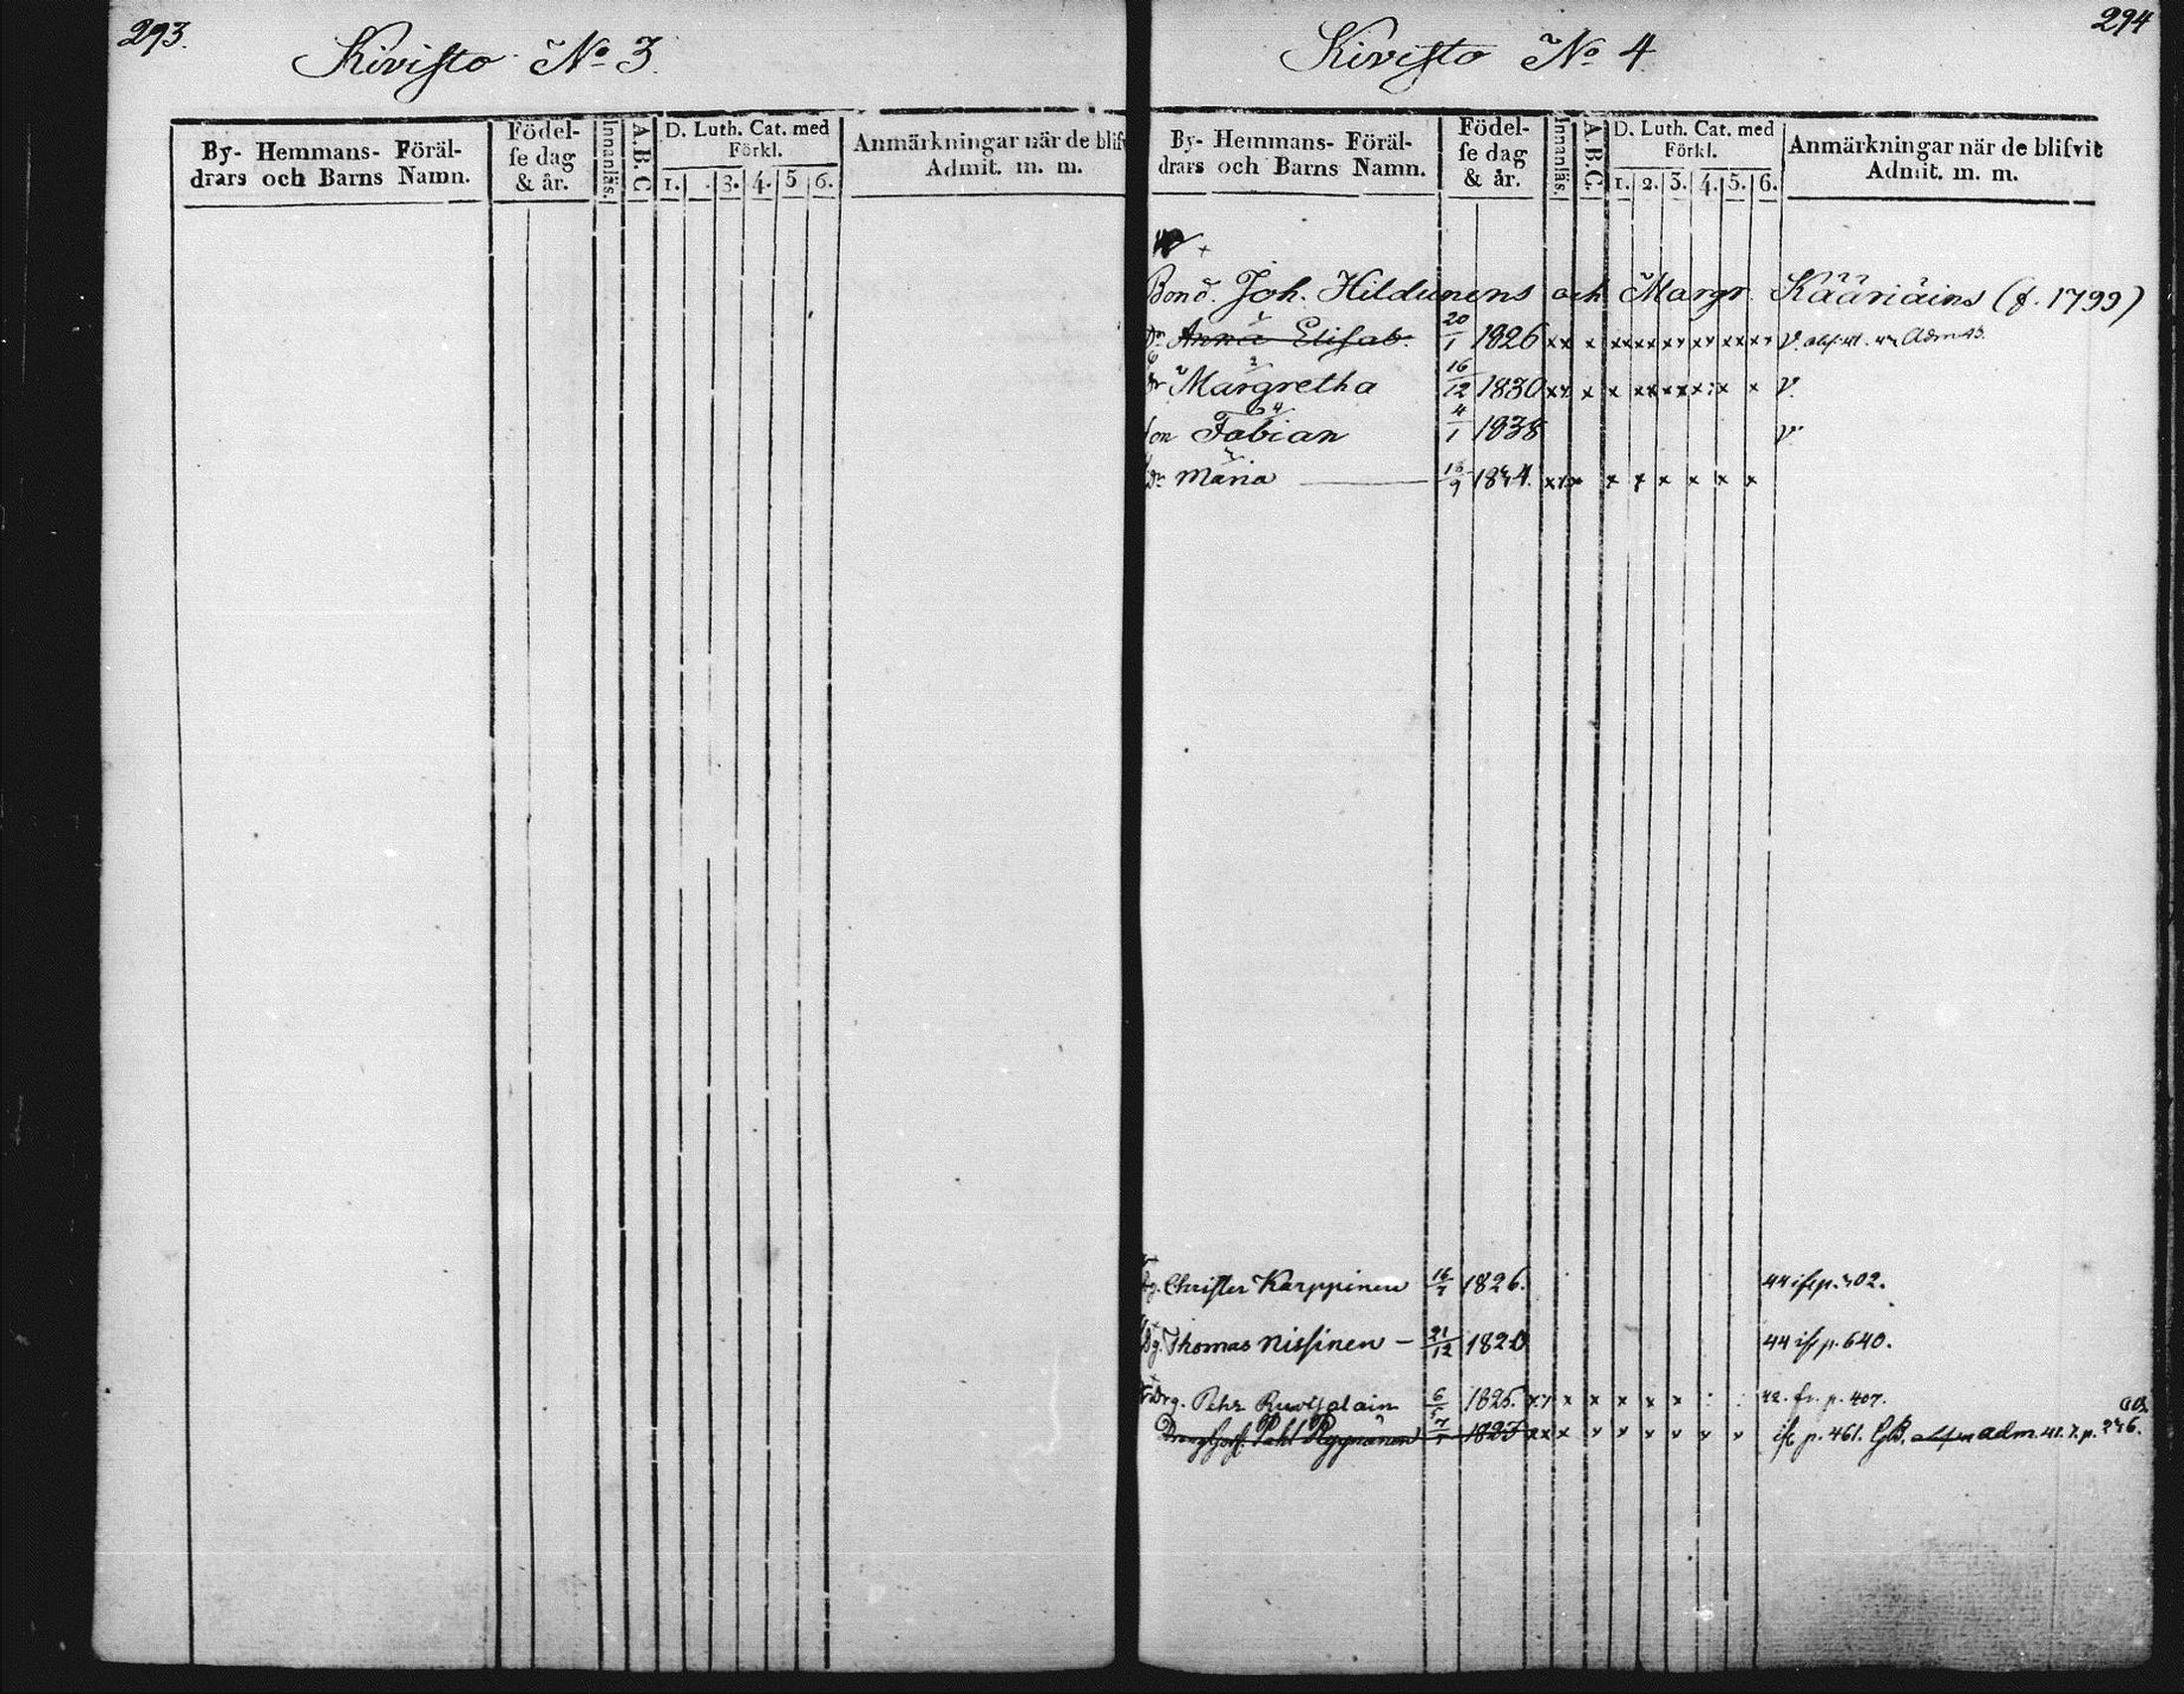 293.
Kivisto No 3.
By- Hemmans- Föräl-
drars och Barns Namn.
Födel-
se dag
& år.
Innanläs.
A.B.C
D. Luth. Cat. med
Förkl.
1. . 3. 4. 5 6.
Anmärkningar när de blifv
Admit. m. m.
294
Kivisto No 4
By- Hemmans- Föräl-
drars och Barns Namn.
Födel-
se dag
& år.
Innanläs.
A.B.C.
D. Luth. Cat. med
Förkl.
1. 2. 3. 4. 5. 6.
Anmärkningar när de blifvit
Admit. m. m.
Bond. Joh. Hildunens och Margr. Kääriäins (f. 1799)
Dr Anna Elisab. 20/1 1826 xx x xx xx xx xx xx xx v. Adm 43.
Dr Margretha 16/12 1830 xx x x xx xx x x x v.
Son Fabian 4/1 1838 v.
Dr Maria 9 xxx x x x x x x
Dg. Christer Karppinen 1826. 44 ifr p. 302.
Dg. Thomas Nissinen - 21/12 1820 44 ifr p. 640.
Drg. Pehr 6/5 1825. xx x x x x x : : 42. fr. p. 407.
Pahl Ryynänen 7/5 1823 xxx x x x x x x p. 461. adm. 41. p. 276.